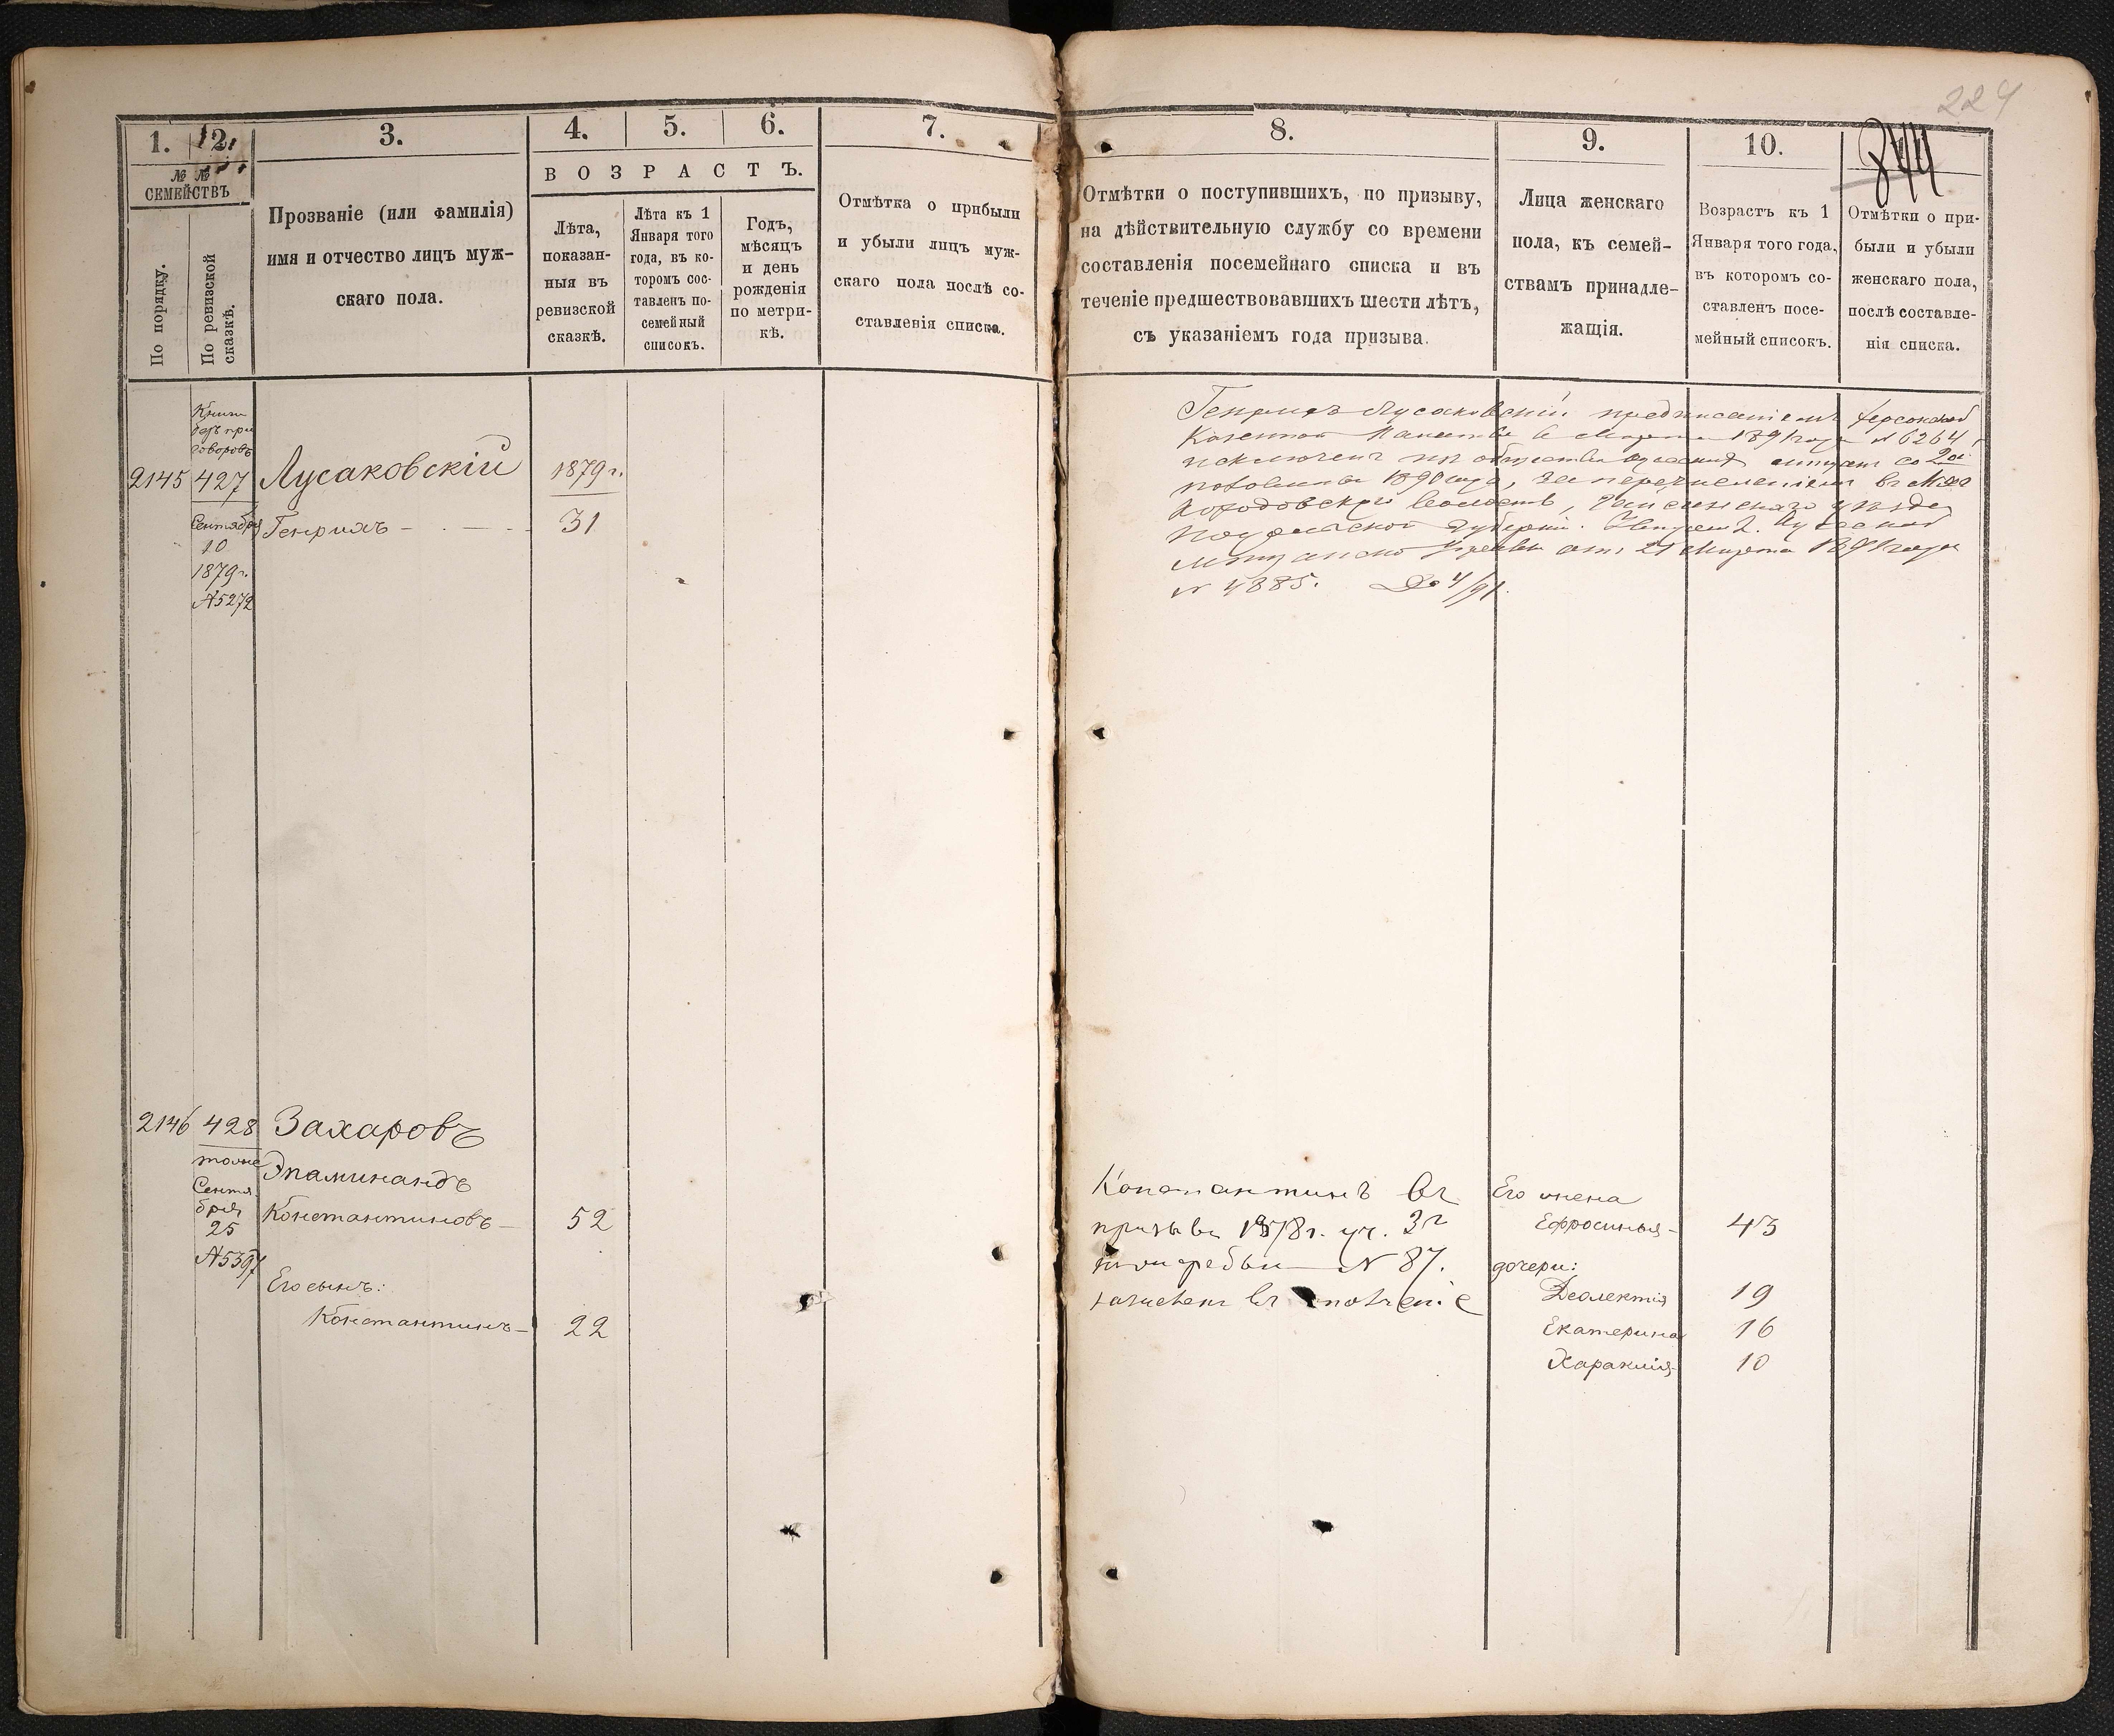 224
844
1.
2.
3.
4.
5.
6.
7.
№ №
СЕМЕЙСТВЪ
По порядку.
По ревизской
сказкѣ.
Прозваніе (или фамилія)
имя и отчество лицъ муж-
скаго пола.
ВОЗРАСТЪ.
Лѣта,
показан-
ныя въ
ревизской
сказкѣ.
Лѣта къ 1
Января того
года, въ ко-
торомъ сос-
тавленъ по-
семейный
списокъ.
Годъ,
мѣсяцъ
и день
рожденія
по метри-
кѣ.
Отмѣтка о прибыли
и убыли лицъ муж-
скаго пола послѣ со-
ставленія списка.
8.
9.
10.
Отмѣтки о поступившихъ, по призыву,
на дѣйствительную службу со времени
составленія посемейнаго списка и въ
теченіе предшествовавшихъ шести лѣтъ,
съ указаніемъ года призыва.
Лица женскаго
пола, къ семей-
ствамъ принадле-
жащія.
Возрастъ къ 1
Января того года,
въ которомъ со-
ставленъ посе-
мейный списокъ.
Отмѣтки о при-
были и убыли
женскаго пола,
послѣ составле-
нія списка.
Книги
безъ при
говоровъ
2145 427 Лусаковскій 1879 г.
Сентября Генрихъ 31
10
1879 г.
№ 5272
Генрихъ Лусаковскій предписаніемъ Херсонской
Казенной Палаты 6 Марта 1891 года № 6264,
исключенъ изъ общества мѣщанъ со 2ой
половины 1890 года, за перечисленіемъ въ
волость, уѣзда
Подольской Губерніи.
Управы отъ 21 Марта 1891 года
№ 4885.
2146 428 Захаровъ
тоже Эпаминандъ
Сентя
бря Константиновъ — 52
25
№ 5397
Его сынъ:
Константинъ — 22
Константинъ въ
призывъ 1878 г. уч. 3 г
№ 87.
зачисленъ въ ополченіе
Его жена
Ефросинья — 43
дочери:
Феолектія 19
Екатерина 16
10